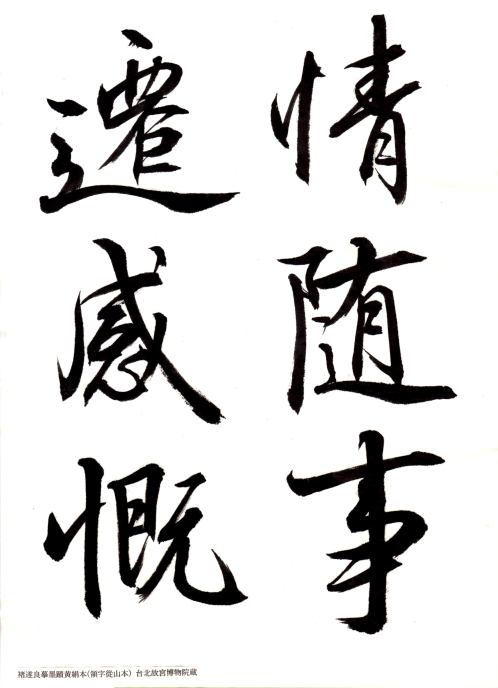 情随事
遷感慨
褚遂良摹墨蹟黄絹本(領字從山本) 台北故宮博物院蔵